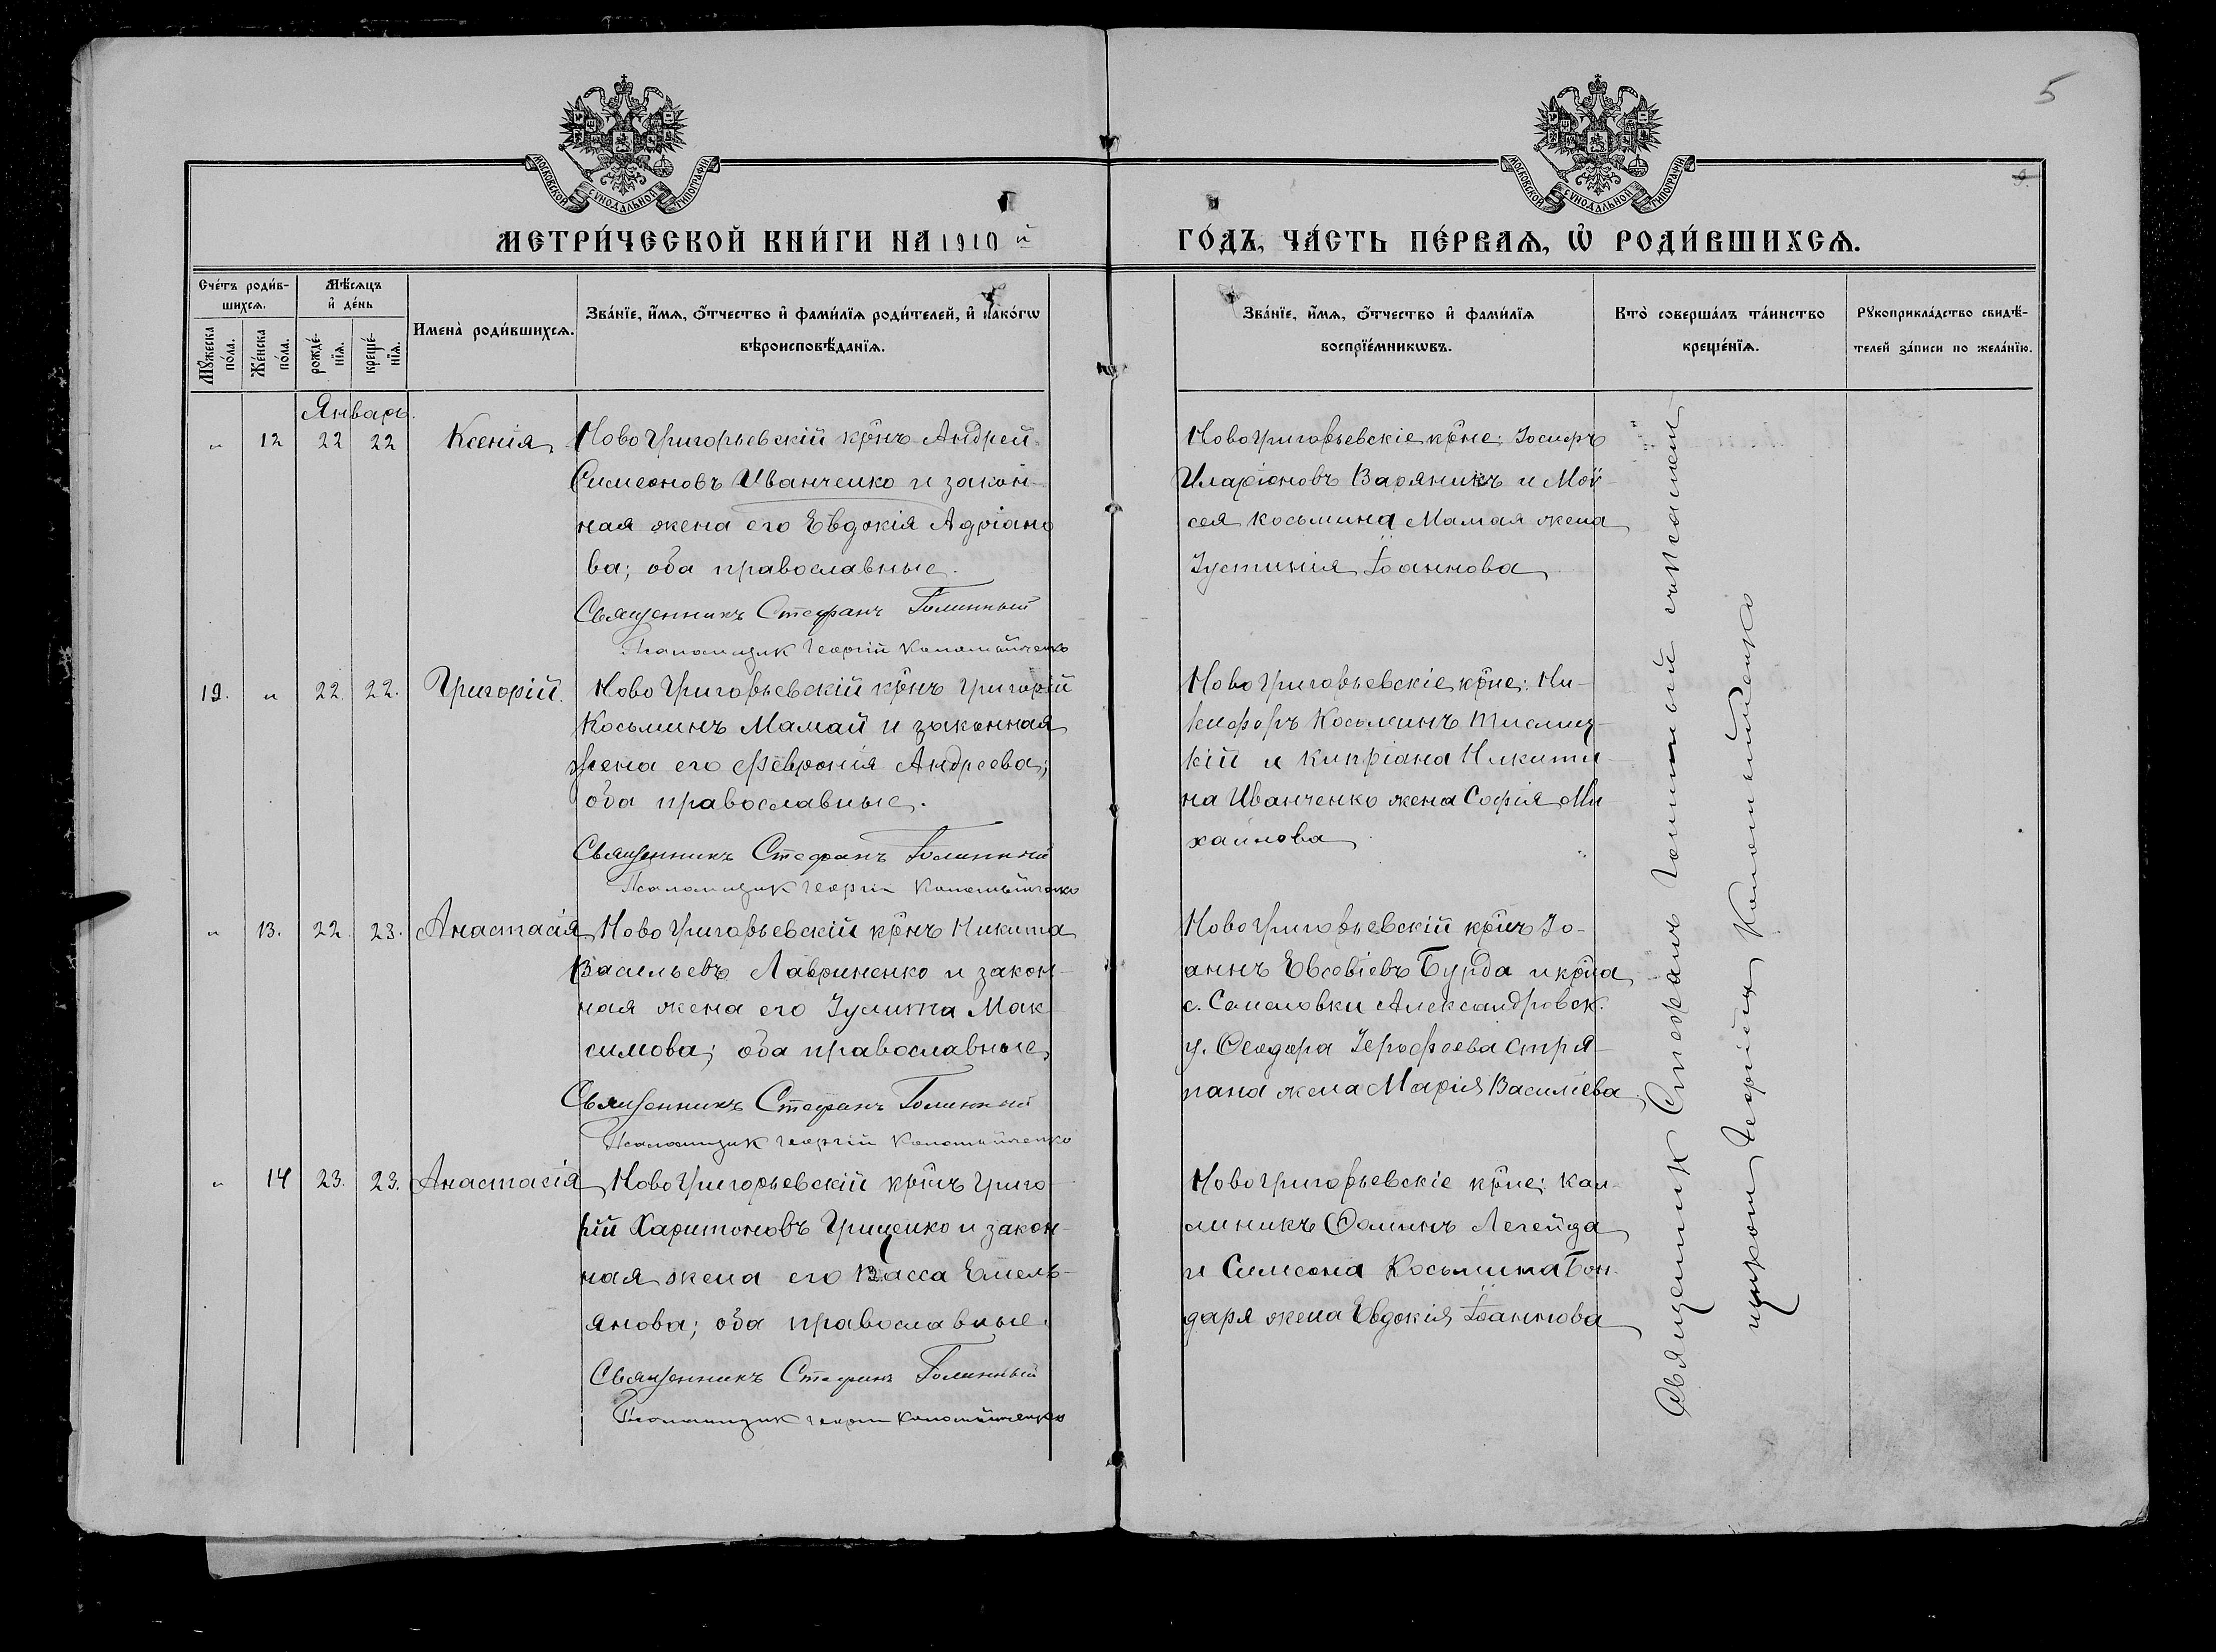 5
9.
МОСКОВСКОЙ СѴНОДАЛЬНОЙ ТИПОГРАФІИ
МОСКОВСКОЙ СѴНОДАЛЬНОЙ ТИПОГРАФІИ
МЕТРИ́ЧЕСКОЙ КНИ́ГИ НА 1910 й
ГО́ДЪ, ЧА́СТЬ ПЕ́РВАѦ, Ѡ҆ РОДИ́ВШИХСѦ.
Сче́тъ роди́в-
шихсѧ.
Мꙋ́жеска по́ла.
Же́нска по́ла.
Мѣ́сѧцъ
и҆ де́нь
рожде́-
нїѧ.
креще́-
нїѧ.
Имена̀ роди́вшихсѧ.
Зва́нїе, и҆́мѧ, ѻ҆́тчество и҆ фами́лїѧ роди́телей, и҆ како́гѡ
вѣроисповѣ́данїѧ.
Зва́нїе, и҆́мѧ, ѻ҆́тчество и҆ фами́лїѧ
воспрїе́мникѡвъ.
Кто̀ соверша́лъ та́инство
креще́нїѧ.
Рꙋкоприкла́дство свидѣ́-
телей за́писи по жела́нїю.
Январь.
" 12 22 22 Ксенія
НовоГригорьевскій крнъ Андрей
Симеоновъ Иванченко и закон-
ная жена его Евдокія Адріано
ва; оба православные.
Священникъ Стефанъ Голинный
Псаломщик Георгій Коломыйченко
НовоГригорьевскіе крне: Іосифъ
Иларіоновъ Варяникъ и Мои-
сея Косьмина Мамая жена
Іустинія Іоаннова
12. " 22. 22. Григорій.
НовоГригорьевскій крнъ Григорій
Косьминъ Мамай и законная
жена его Феѵронія Андреева;
оба православные.
Священникъ Стефанъ Голинный
Псаломщик Георгій Коломыйченко
НовоГригорьевскіе крне: Ни-
кифоръ Косьминъ
кій и Кипріана Никити-
на Иванченко жена Софія Ми-
хайлова
" 13. 22. 23. Анастасія
НовоГригорьевскій крнъ Никита
Васильевъ Лавриненко и закон-
ная жена его Іулитта Мак
симова; оба православные,
Священникъ Стефанъ Голинный
Псаломщик Георгій Коломыйченко
НовоГригорьевскій крнъ Іо-
аннъ Евсевіевъ Бурда и крна
с. Александровск.
у. Ѳеодора Іерофеева Стря-
пана жена Марія Василіева
" 14 23. 23. Анастасія
НовоГригорьевскій крнъ Григо-
рій Харитоновъ Гриценко и закон-
ная жена его Васса Емель-
янова; оба православные.
Священникъ Стефанъ Голинный
Псаломщик Георгій Коломыйченко
НовоГригорьевскіе крне: Кал-
линикъ Ѳоминъ Легейда
и Симеона Косьмина Бон-
даря жена Евдокія Іоаннова
Священникъ Стефанъ Голинный съ псалом-
щикомъ Георгіемъ Коломыйченко